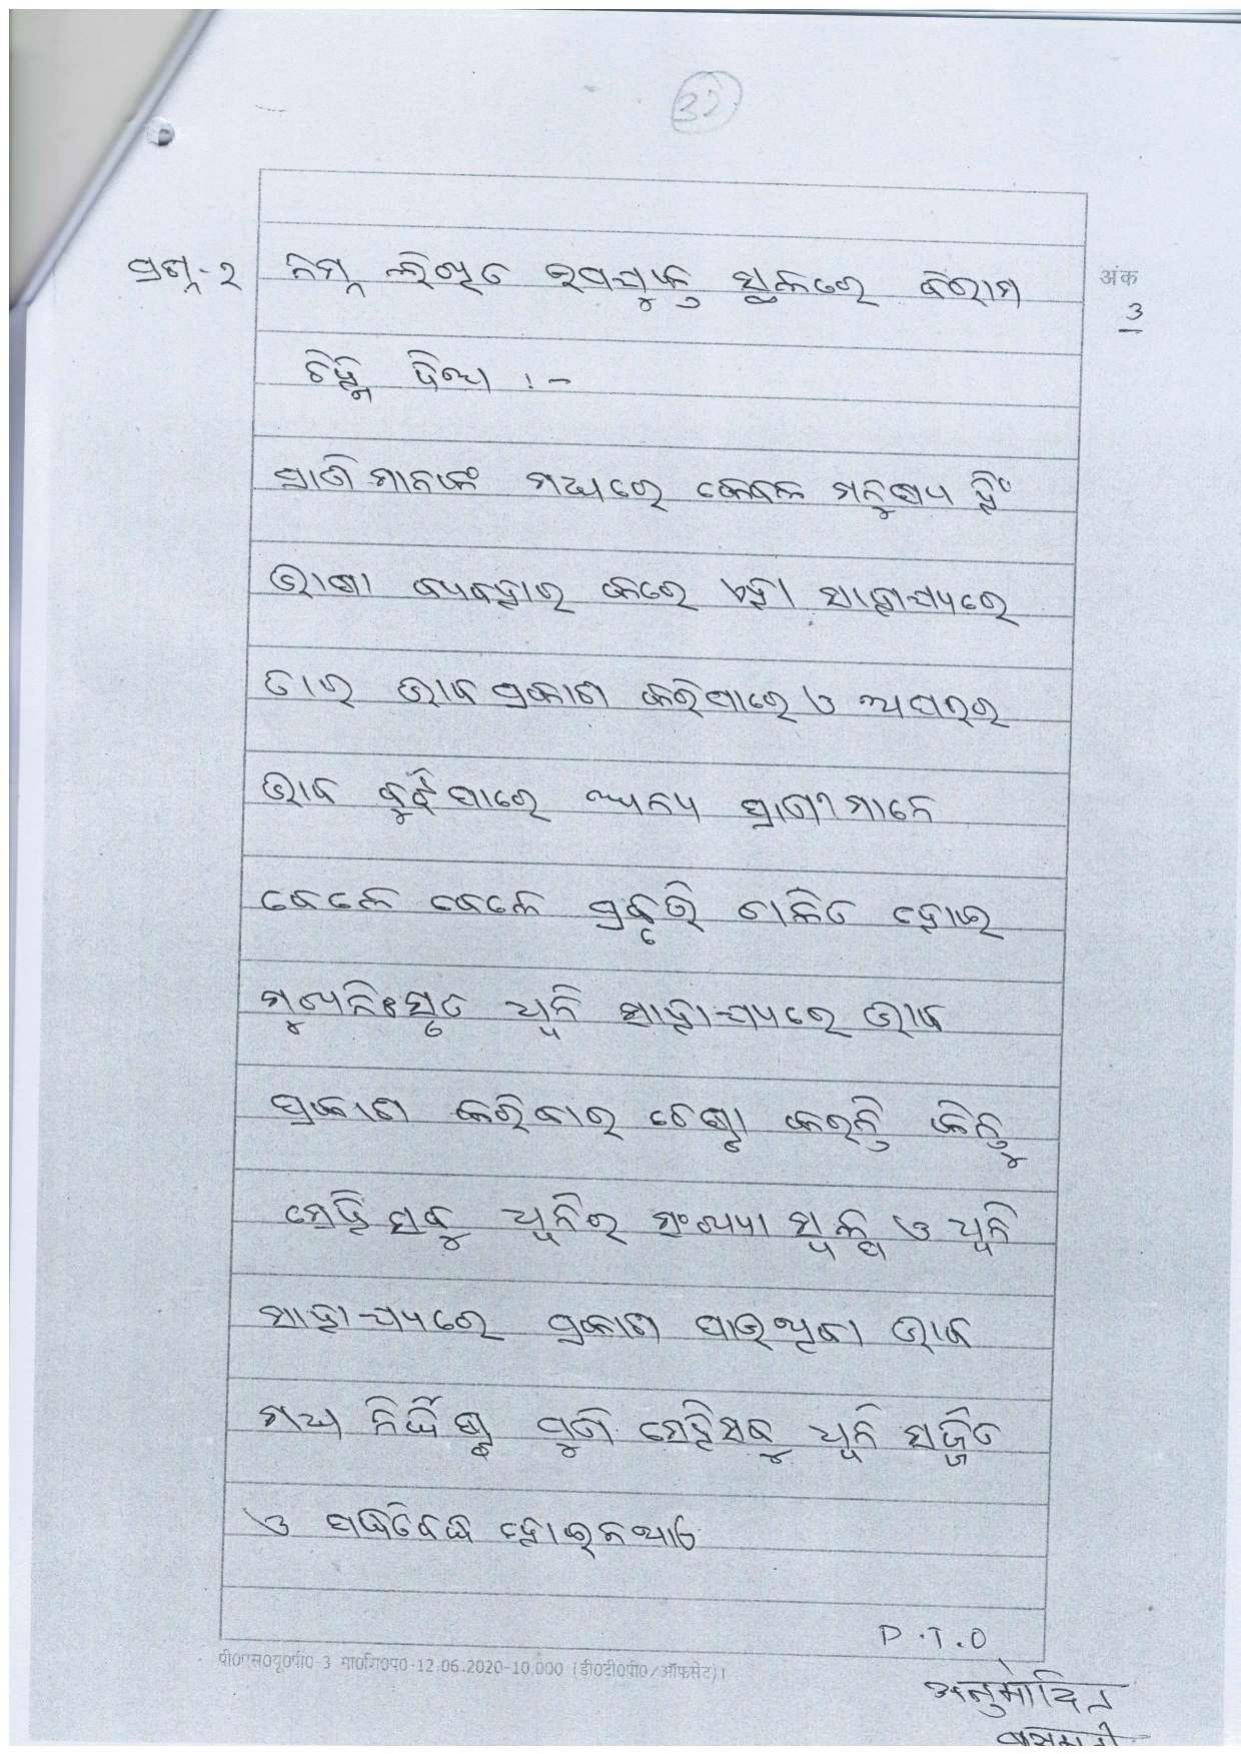 32
ପ୍ରଶ୍ନ-୨ ନିମ୍ନ ଲିଖିତ ଉପଯୁକ୍ତ ସ୍ଥଳରେ ବିରାମ
अंक
3
ଚିହ୍ନ ଦିଅ ।:-
ପ୍ରାଣିମାନଙ୍କ ମଧ୍ୟରେ କେବଳ ମନୁଷ୍ୟ ହିଁ
ଭାଷା ବ୍ୟବହାର କରେ ଏହା ସାହାଯ୍ୟରେ
ତାର ଭାବ ପ୍ରକାଶ କରିପାରେ ଓ ଅପରର
ଭାବ ବୁଝିପାରେ ଅନ୍ୟ ପ୍ରାଣୀମାନେ
ବେଳେ ବେଳେ ପ୍ରବୃତ୍ତି ଚାଳିତ ହୋଇ
ମୁଖନିଃସୃତ ଧ୍ୱନି ସାହାଯ୍ୟରେ ଭାବ
ପ୍ରକାଶ କରିବାର ଚେଷ୍ଟା କରନ୍ତି କିନ୍ତୁ
ସେହି ସବୁ ଧ୍ୱନିର ସଂଖ୍ୟା ସ୍ୱଳ୍ପ ଓ ଧ୍ୱନି
ସାହାଯ୍ୟରେ ପ୍ରକାଶ ପାଉଥିବା ଭାବ
ମଧ୍ୟ ନିର୍ଦ୍ଦିଷ୍ଟ ପୁଣି ସେହିସବୁ ଧ୍ୱନି ସଜ୍ଜିତ
ଓ ହୋଇନଥାଏ
P.T.O
पी०एस०यू०पी०-3 सा०नि०प०-12.06.2020-10,000 (डी०टी०पी०/ऑफसेट)।
अनुमोदित